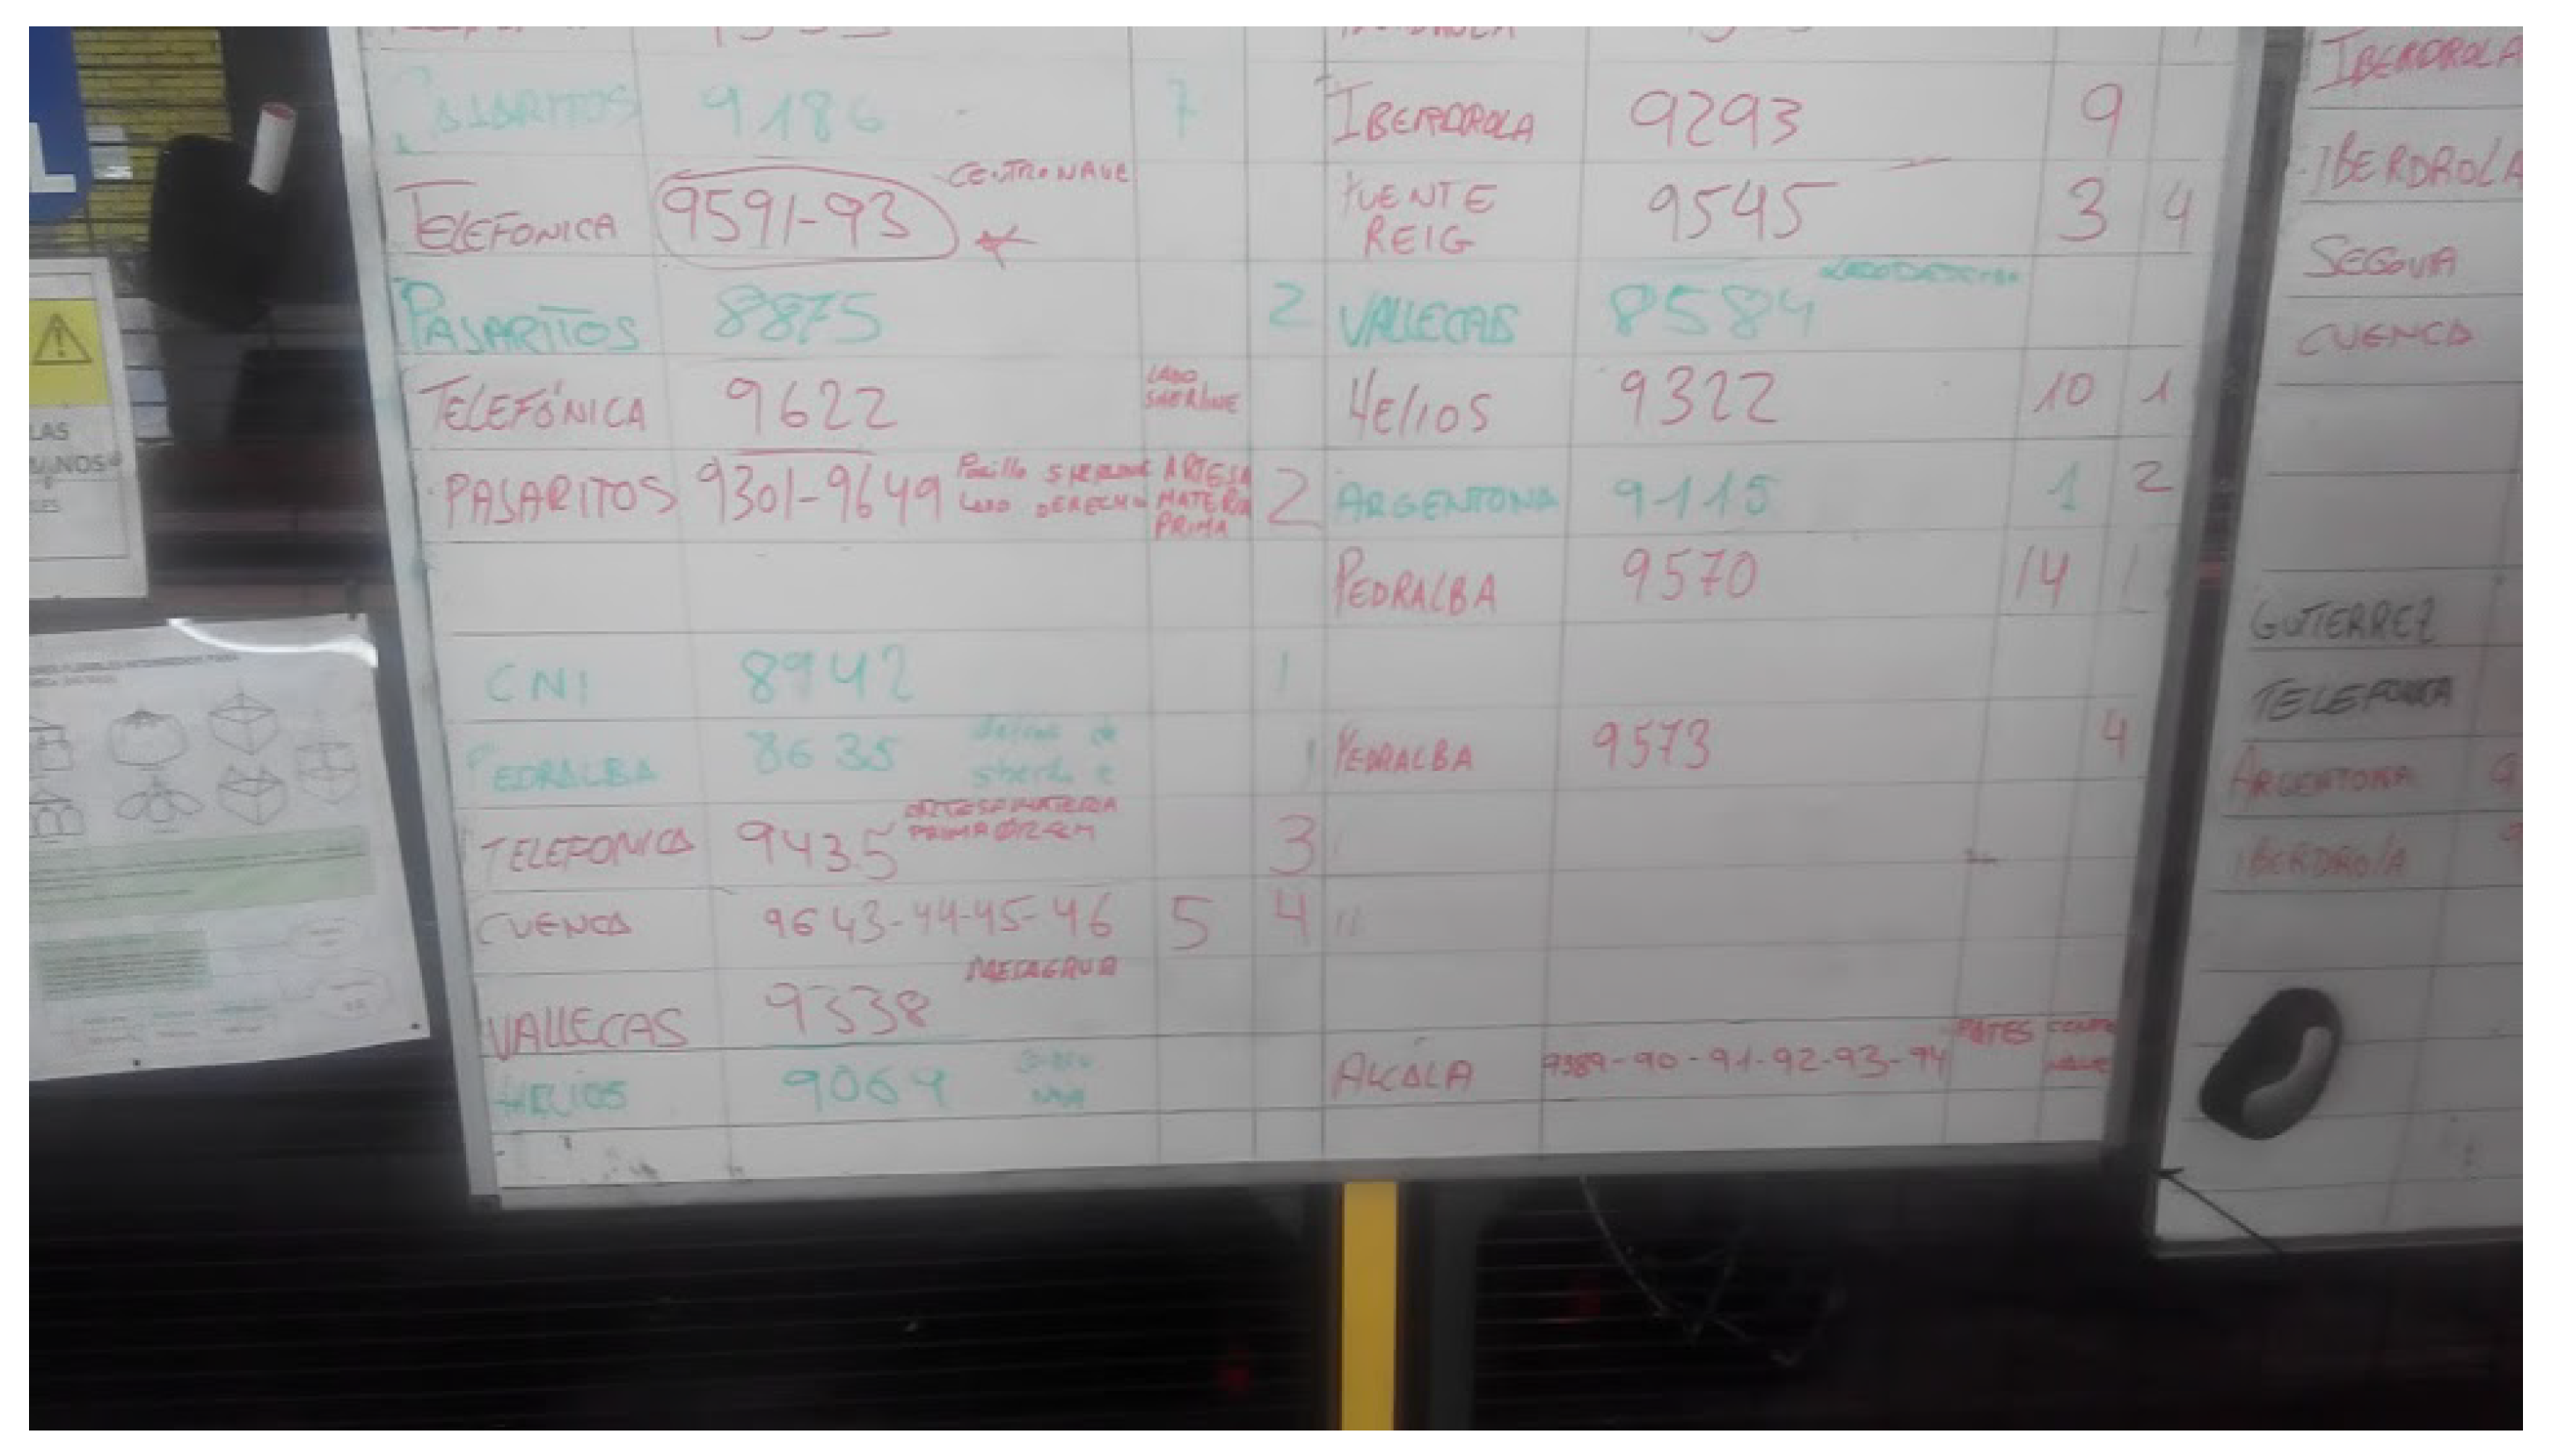 PASARITOS 9186 7
TELEFONICA 9591-93 CENTRONAVE
PASARITOS 8875 2
TELEFÓNICA 9622 LADO SHERLINE
PASARITOS 9301-9649 Pasillo LADO DERECHO ARTESA MATERIA PRIMA 2
CNI 8942 1
PEDRALBA 8635 detras de 1
TELEFONICA 9435 MATERIA PRIMA 3
CUENCA 9643-44-45-46 5 4
VALLECAS 9338
HELIOS 9069
IBERDROLA 9293 9
FUENTE REIG 9545 3 4
VALLECAS 8584
HELIOS 9322 10 1
ARGENTONA 9115 1 2
PEDRALBA 9570 14
PEDRALBA 9573 4
"
ALCALA 9389-90-91-92-93-94
IBERDROLA
IBERDROLA
SEGOVIA
CUENCA
GUTIERREZ
TELEFONICA
ARGENTONA 9
IBERDROLA 9
LAS